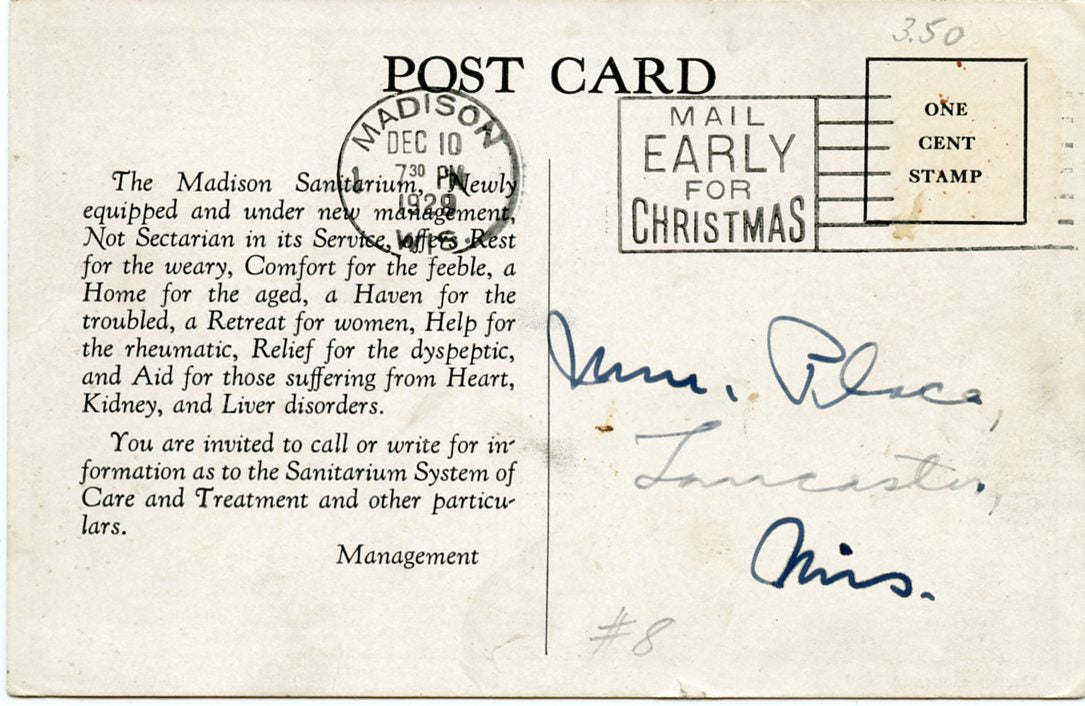 3.50
POST CARD
MADISON
DEC 10
7 30 PM
1929
WIS.
1
MAIL
EARLY
FOR
CHRISTMAS
ONE
CENT
STAMP
The Madison Sanitarium, Newly
equipped and under new management,
Not Sectarian in its Service, offers Rest
for the weary, Comfort for the feeble, a
Home for the aged, a Haven for the
troubled, a Retreat for women, Help for
the rheumatic, Relief for the dyspeptic,
and Aid for those suffering from Heart,
Kidney, and Liver disorders.
You are invited to call or write for in-
formation as to the Sanitarium System of
Care and Treatment and other particu-
lars.
Management
Lancaster,
Wis.
#8